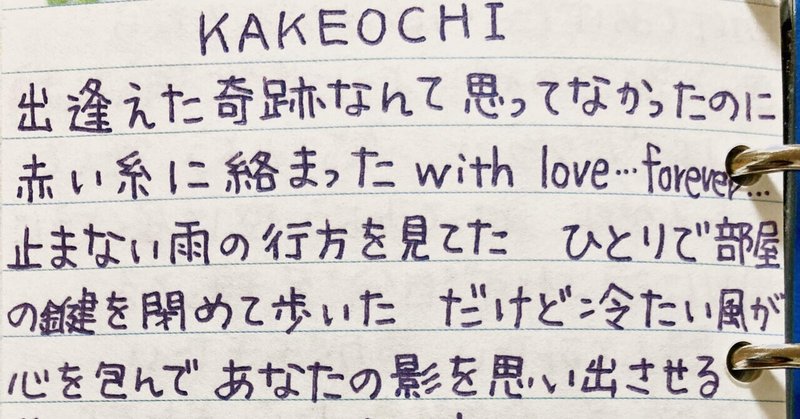 KAKEOCHI
出逢えた奇跡なんて思ってなかったのに
赤い糸に絡まった with love…forever…
止まない雨の行方を見てた　ひとりで部屋
の鍵を閉めて歩いた　だけど冷たい風が
心を包んで あなたの影を思い出させる